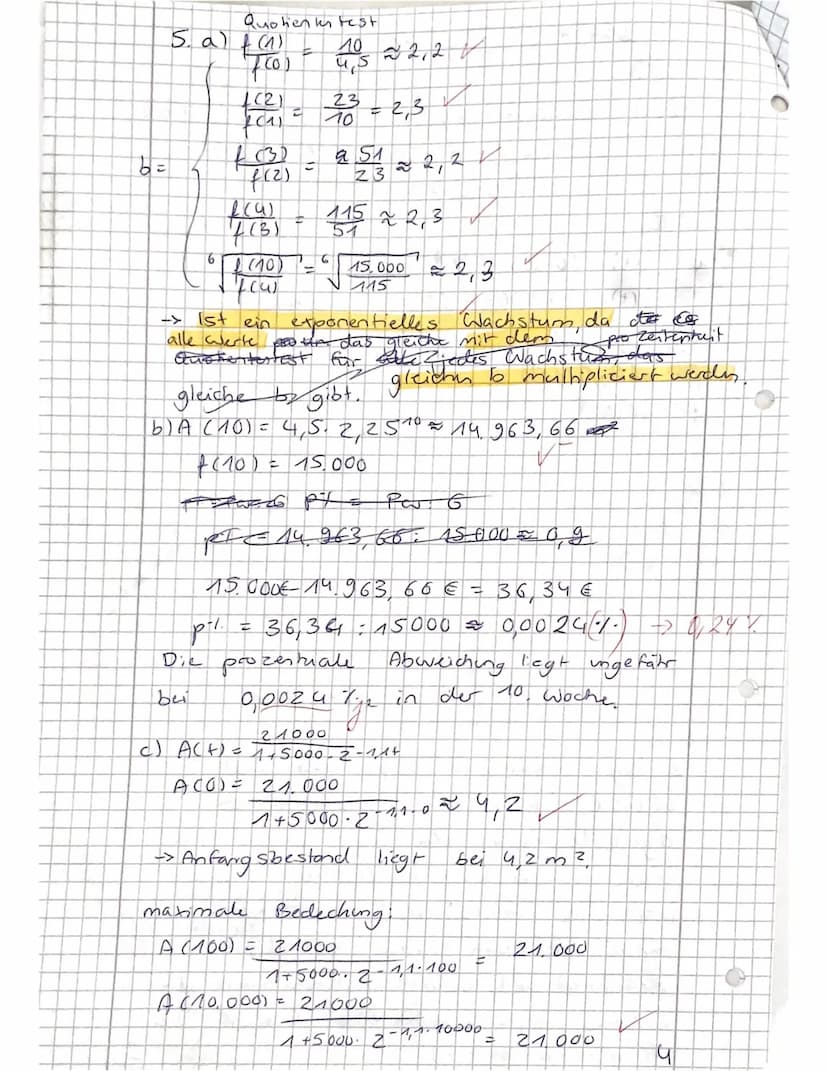 Quotientest
5. a) f(1)/f(0) = 10/4,5 ≈ 2,2 ✓
f(2)/f(1) = 23/10 = 2,3 ✓
b = f(3)/f(2) = 51/23 ≈ 2,2 ✓
f(4)/f(3) = 115/51 ≈ 2,3 ✓
⁶√(f(10)/f(4)) = ⁶√(15.000/115) ≈ 2,3 ✓
-> Ist ein exponentielles Wachstum, da
alle Werte das gleiche mit dem pro Zeiteinheit
Quotientest für jedes Wachstum das
gleichen b multipliciert werden.
gleiche b gibt.
b) A(10) = 4,5 · 2,25¹⁰ ≈ 14.963,66
f(10) = 15.000 ✓
p% = Pw : G
p% = 14.963,66 : 15000 ≈ 0,9
15.000€ - 14.963,66 € = 36,34 €
p% = 36,34 : 15000 ≈ 0,0024 (%) -> 0,24%
Die prozentuale Abweichung liegt ungefähr
bei 0,0024 % in der 10. Woche.
c) A(t) = 21000/(1+5000·2^-1,1t)
A(0) = 21.000/(1+5000·2^-1,1·0) ≈ 4,2 ✓
-> Anfangsbestand liegt bei 4,2 m².
maximale Bedeckung:
A(100) = 21000/(1+5000·2^-1,1·100) = 21.000
A(10.000) = 21000/(1+5000·2^-1,1·10000) = 21.000 ✓
4